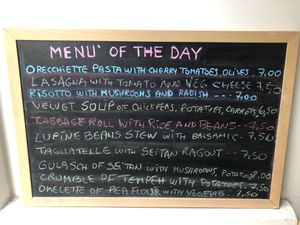 MENU' OF THE DAY
ORECCHIETTE PASTA WITH CHERRY TOMATOES, OLIVES . 7,00
LASAGNA WITH TOMATO AND VEG CHEESE 7,50
RISOTTO WITH MUSHROOMS AND RADISH --- 7,00
VELVET SOUP OF CHICKPEAS, POTATOES, CARROTS, 6,50
CABBAGE ROLL WITH RICE AND BEANS - 7,50
LUPINE BEANS STEW WITH BALSAMIC - 7,50
TAGLIATELLE WITH SEITAN RAGOUT - 7,50
GULASCH OF SEITAN WITH MUSHROOMS, POTATOES 8.00
CRUMBLE OF TEMPEH WITH POTATOES . 7,50
OMELETTE OF PEA FLOUR WITH VEGETAB . 7,50